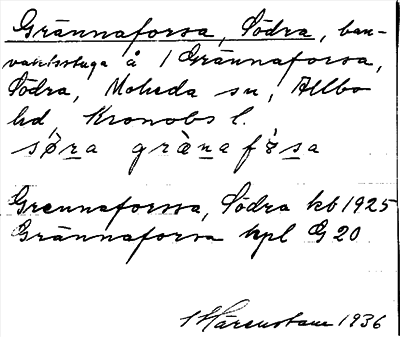 Grännaforsa, Södra, ban-
vaktsstuga å 1 Grännaforsa,
Södra, Moheda sn, Allbo
hd, Kronobs l.
Grennaforssa, Södra kb 1925
Grännaforsa hpl G 20
Härenstam 1936